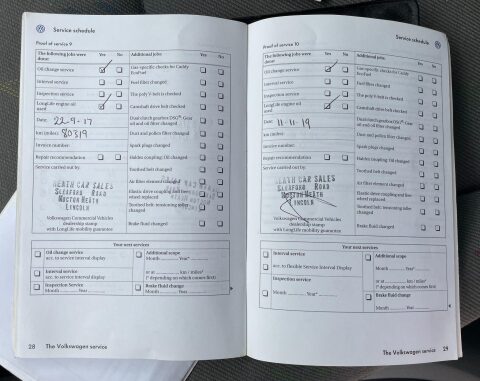 Service schedule
Proof of service 9
The following jobs were done: Yes No Additional jobs Yes No
Oil change service Gas-specific checks for Caddy EcoFuel
Interval service Fuel filter changed
Inspection service The poly V-belt is checked
LongLife engine oil used Camshaft drive belt checked
Date: 22-9-17 Dual clutch gearbox DSG®: Gear oil and oil filter changed
km (miles): 80319 Dust and pollen filter changed
Invoice number: Spark plugs changed
Repair recommendation Haldex coupling: Oil changed
Service carried out by: Toothed belt changed
HEATH CAR SALES
SLEAFORD ROAD
LINCOLN
Air filter element changed
Toothed belt tensioning roller changed
Volkswagen Commercial Vehicles
dealership stamp
with LongLife mobility guarantee
Brake fluid changed
Your next services
Oil change service
acc. to service interval display
Additional scope
Month Year
Interval service
acc. to Service Interval Display
or at km / miles*
(* depending on which comes first)
Inspection Service
Month Year
Brake fluid change
Month Year
28 The Volkswagen service
Service schedule
Proof of service 10
The following jobs were done: Yes No Additional jobs Yes No
Oil change service Gas-specific checks for Caddy EcoFuel
Interval service Fuel filter changed
Inspection service The poly V-belt is checked
LongLife engine oil used Camshaft drive belt checked
Date: 11-11-19 Dual clutch gearbox DSG®: Gear oil and oil filter changed
km (miles): Dust and pollen filter changed
Invoice number: Spark plugs changed
Repair recommendation Haldex coupling: Oil changed
Service carried out by: Toothed belt changed
HEATH CAR SALES
SLEAFORD ROAD
LINCOLN
Air filter element changed
Elastic drive coupling and flex-wheel replaced
Toothed belt: tensioning roller changed
Volkswagen Commercial Vehicles
dealership stamp
with LongLife mobility guarantee
Brake fluid changed
Your next services
Interval service
acc. to flexible Service Interval Display
Additional scope
Month Year*
Inspection service
Month Year*
or at km / miles*
(* depending on which comes first)
Brake fluid change
Month Year
The Volkswagen service 29